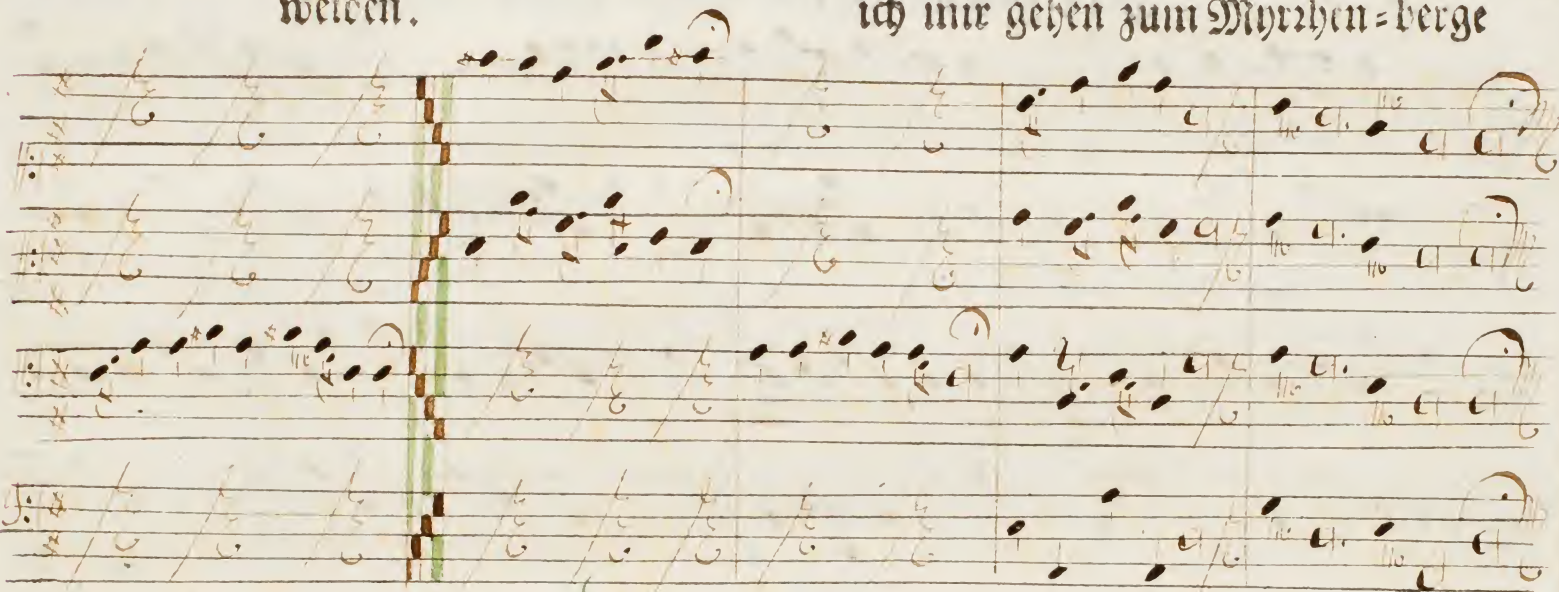 weiden. ich mir gehen zum Myrrhen=berge